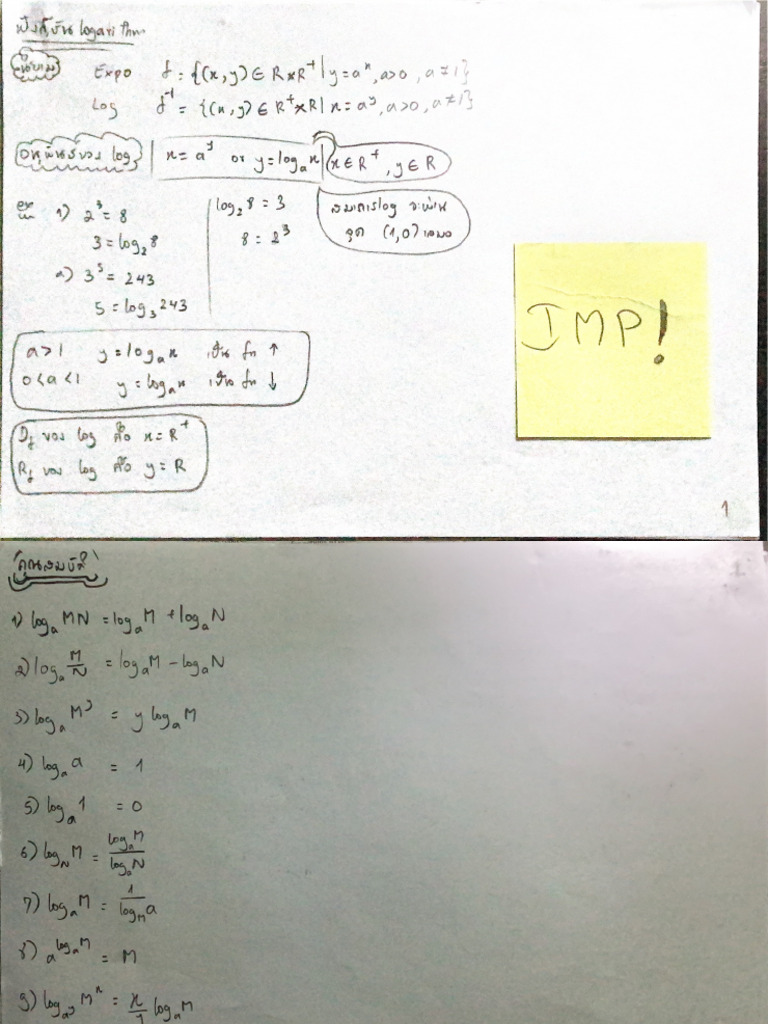 ฟังก์ชัน logarithm
นิยาม
Expo f = {(x,y) ∈ R×R⁺ | y = aˣ, a>0, a≠1}
Log f⁻¹ = {(x,y) ∈ R⁺×R | x = aʸ, a>0, a≠1}
ของ log | x = aʸ or y = logₐx | x∈R⁺, y∈R
ex 1) 2³ = 8
3 = log₂8
2) 3⁵ = 243
5 = log₃243
log₂8 = 3
8 = 2³
สมการ log จะผ่าน
จุด (1,0) เสมอ
IMP!
a>1 y = logₐx เป็น fn ↑
0<a<1 y = logₐx เป็น fn ↓
D_f ของ log คือ x = R⁺
R_f ของ log คือ y = R
1
คุณสมบัติ
1) logₐMN = logₐM + logₐN
2) logₐ M/N = logₐM − logₐN
3) logₐMʸ = y logₐM
4) logₐa = 1
5) logₐ1 = 0
6) log_N M = logₐM / logₐN
7) logₐM = 1 / log_M a
8) a^(logₐM) = M
9) log_(aʸ) Mˣ = x/y logₐM